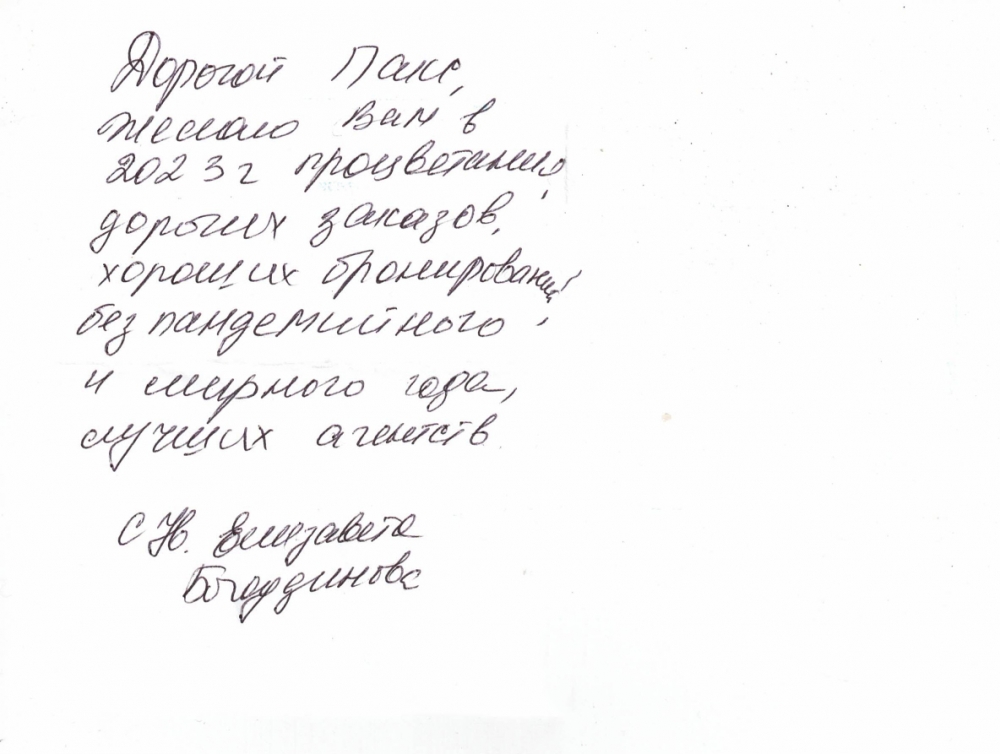 Дорогой Пакс,
желаю Вам в
2023 г процветания,
дорогих заказов,
хороших бронирований,
без пандемийного
и мирного года,
лучших агентств.
С Ув. Елизавета